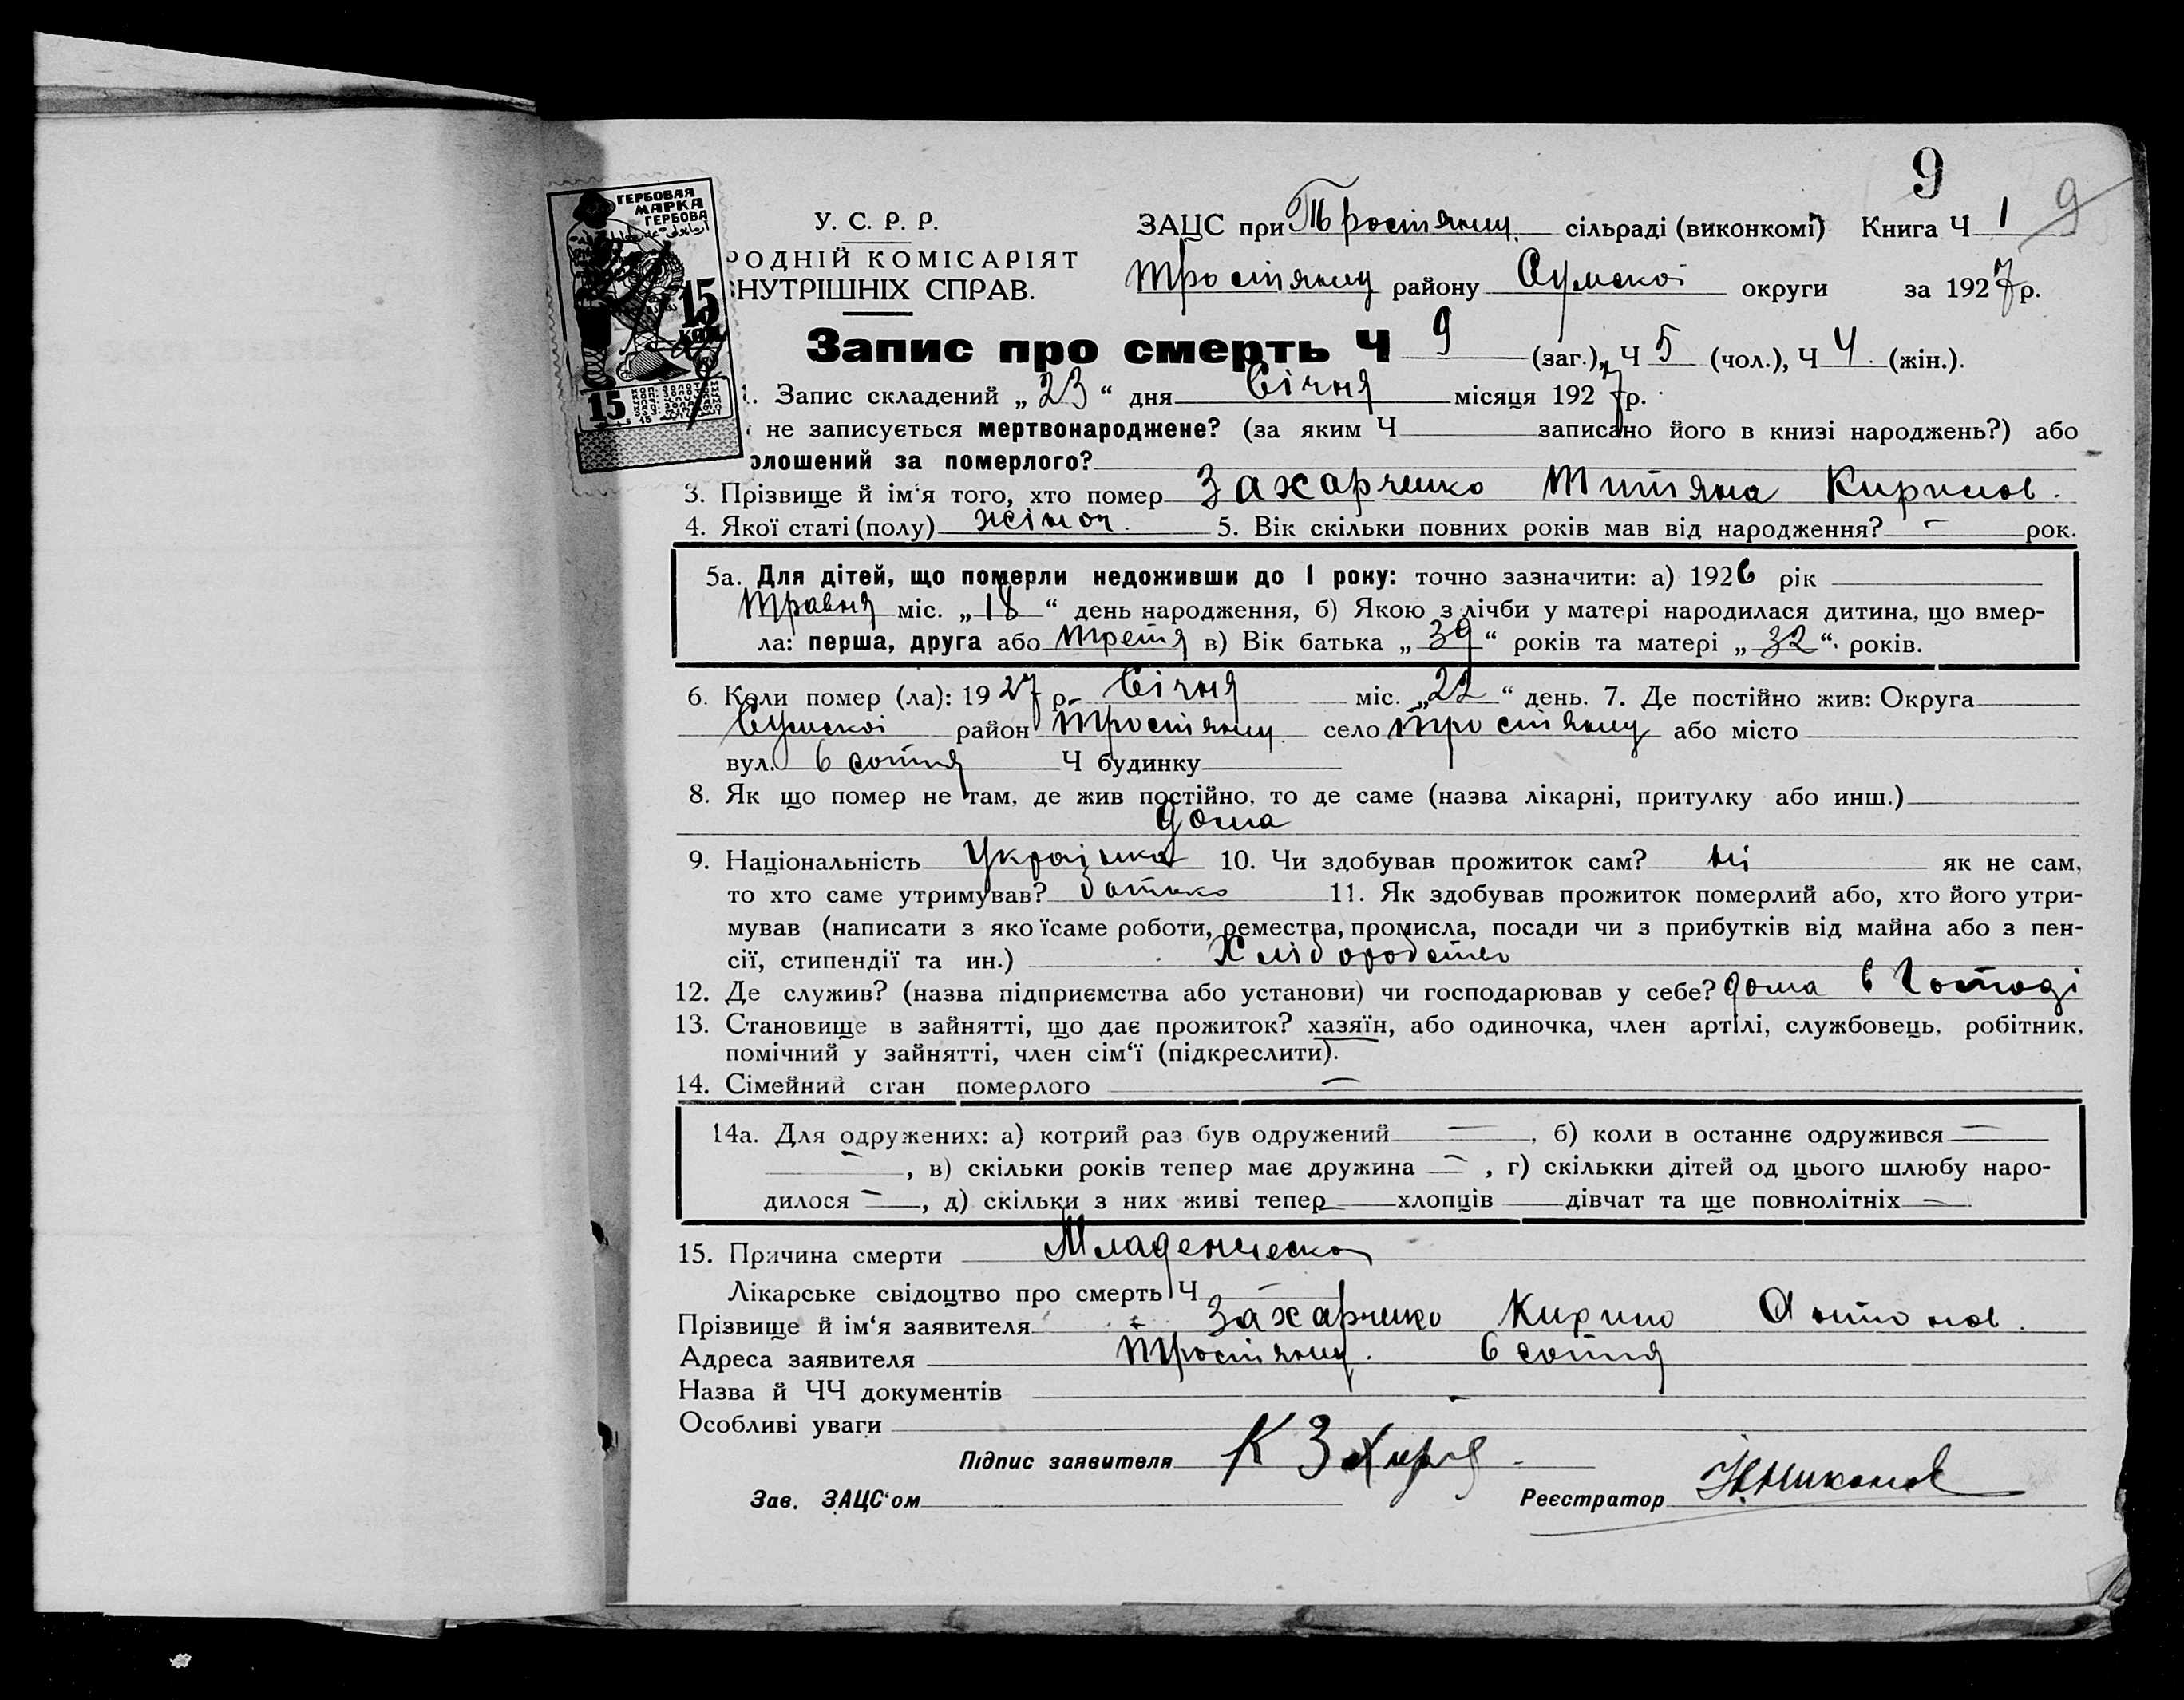 9
9
ГЕРБОВАЯ
МАРКА
ГЕРБОВА
15
КОП
15
У. С. Р. Р.
РОДНІЙ КОМІСАРІЯТ
НУТРІШНІХ СПРАВ.
ЗАЦС при Тростянец. сільраді (виконкомі) Книга Ч 1
Тростянец району Сумської округи за 1927 р.
Запис про смерть Ч 9 (заг.), Ч 5 (чол.), Ч 4 (жін.).
1. Запис складений „ 23 “ дня Січня місяця 1927 р.
не записується мертвонароджене? (за яким Ч записано його в книзі народжень?) або
олошений за померлого?
3. Прізвище й ім‘я того, хто помер Захарченко Титяна Кирилов.
4. Якої статі (полу) жіноч. 5. Вік скільки повних років мав від народження? — рок.
5а. Для дітей, що померли недоживши до 1 року: точно зазначити: а) 1926 рік
Травня міс. „ 18 “ день народження, б) Якою з лічби у матері народилася дитина, що вмер-
ла: перша, друга або третя в) Вік батька „ 39 “ років та матері „ 32 “ років.
6. Коли помер (ла): 1927 р. Січня міс. „ 22 “ день. 7. Де постійно жив: Округа
Сумської район Тростянец село Тростянец або місто
вул. 6 сотня Ч будинку
8. Як що помер не там, де жив постійно, то де саме (назва лікарні, притулку або инш.)
дома
9. Національність Українка 10. Чи здобував прожиток сам? ні як не сам,
то хто саме утримував? батько 11. Як здобував прожиток померлий або, хто його утри-
мував (написати з яко їсаме роботи, ремества, промисла, посади чи з прибутків від майна або з пен-
сії, стипендії та ин.) Хліборобство
12. Де служив? (назва підприємства або установи) чи господарював у себе? дома в Господі
13. Становище в зайнятті, що дає прожиток? хазяїн, або одиночка, член артілі, службовець, робітник,
помічний у зайнятті, член сім‘ї (підкреслити).
14. Сімейний стан померлого —
14а. Для одружених: а) котрий раз був одружений — , б) коли в останнє одружився —
— , в) скільки років тепер має дружина — , г) скількки дітей од цього шлюбу наро-
дилося — , д) скільки з них живі тепер хлопців дівчат та ще повнолітніх —
15. Причина смерти Младенческая
Лікарське свідоцтво про смерть Ч —
Прізвище й ім‘я заявителя Захарченко Кирило Антонов.
Адреса заявителя Тростянец. 6 сотня
Назва й ЧЧ документів
Особливі уваги —
Підпис заявителя К Захарч
Зав. ЗАЦС‘ом Реєстратор